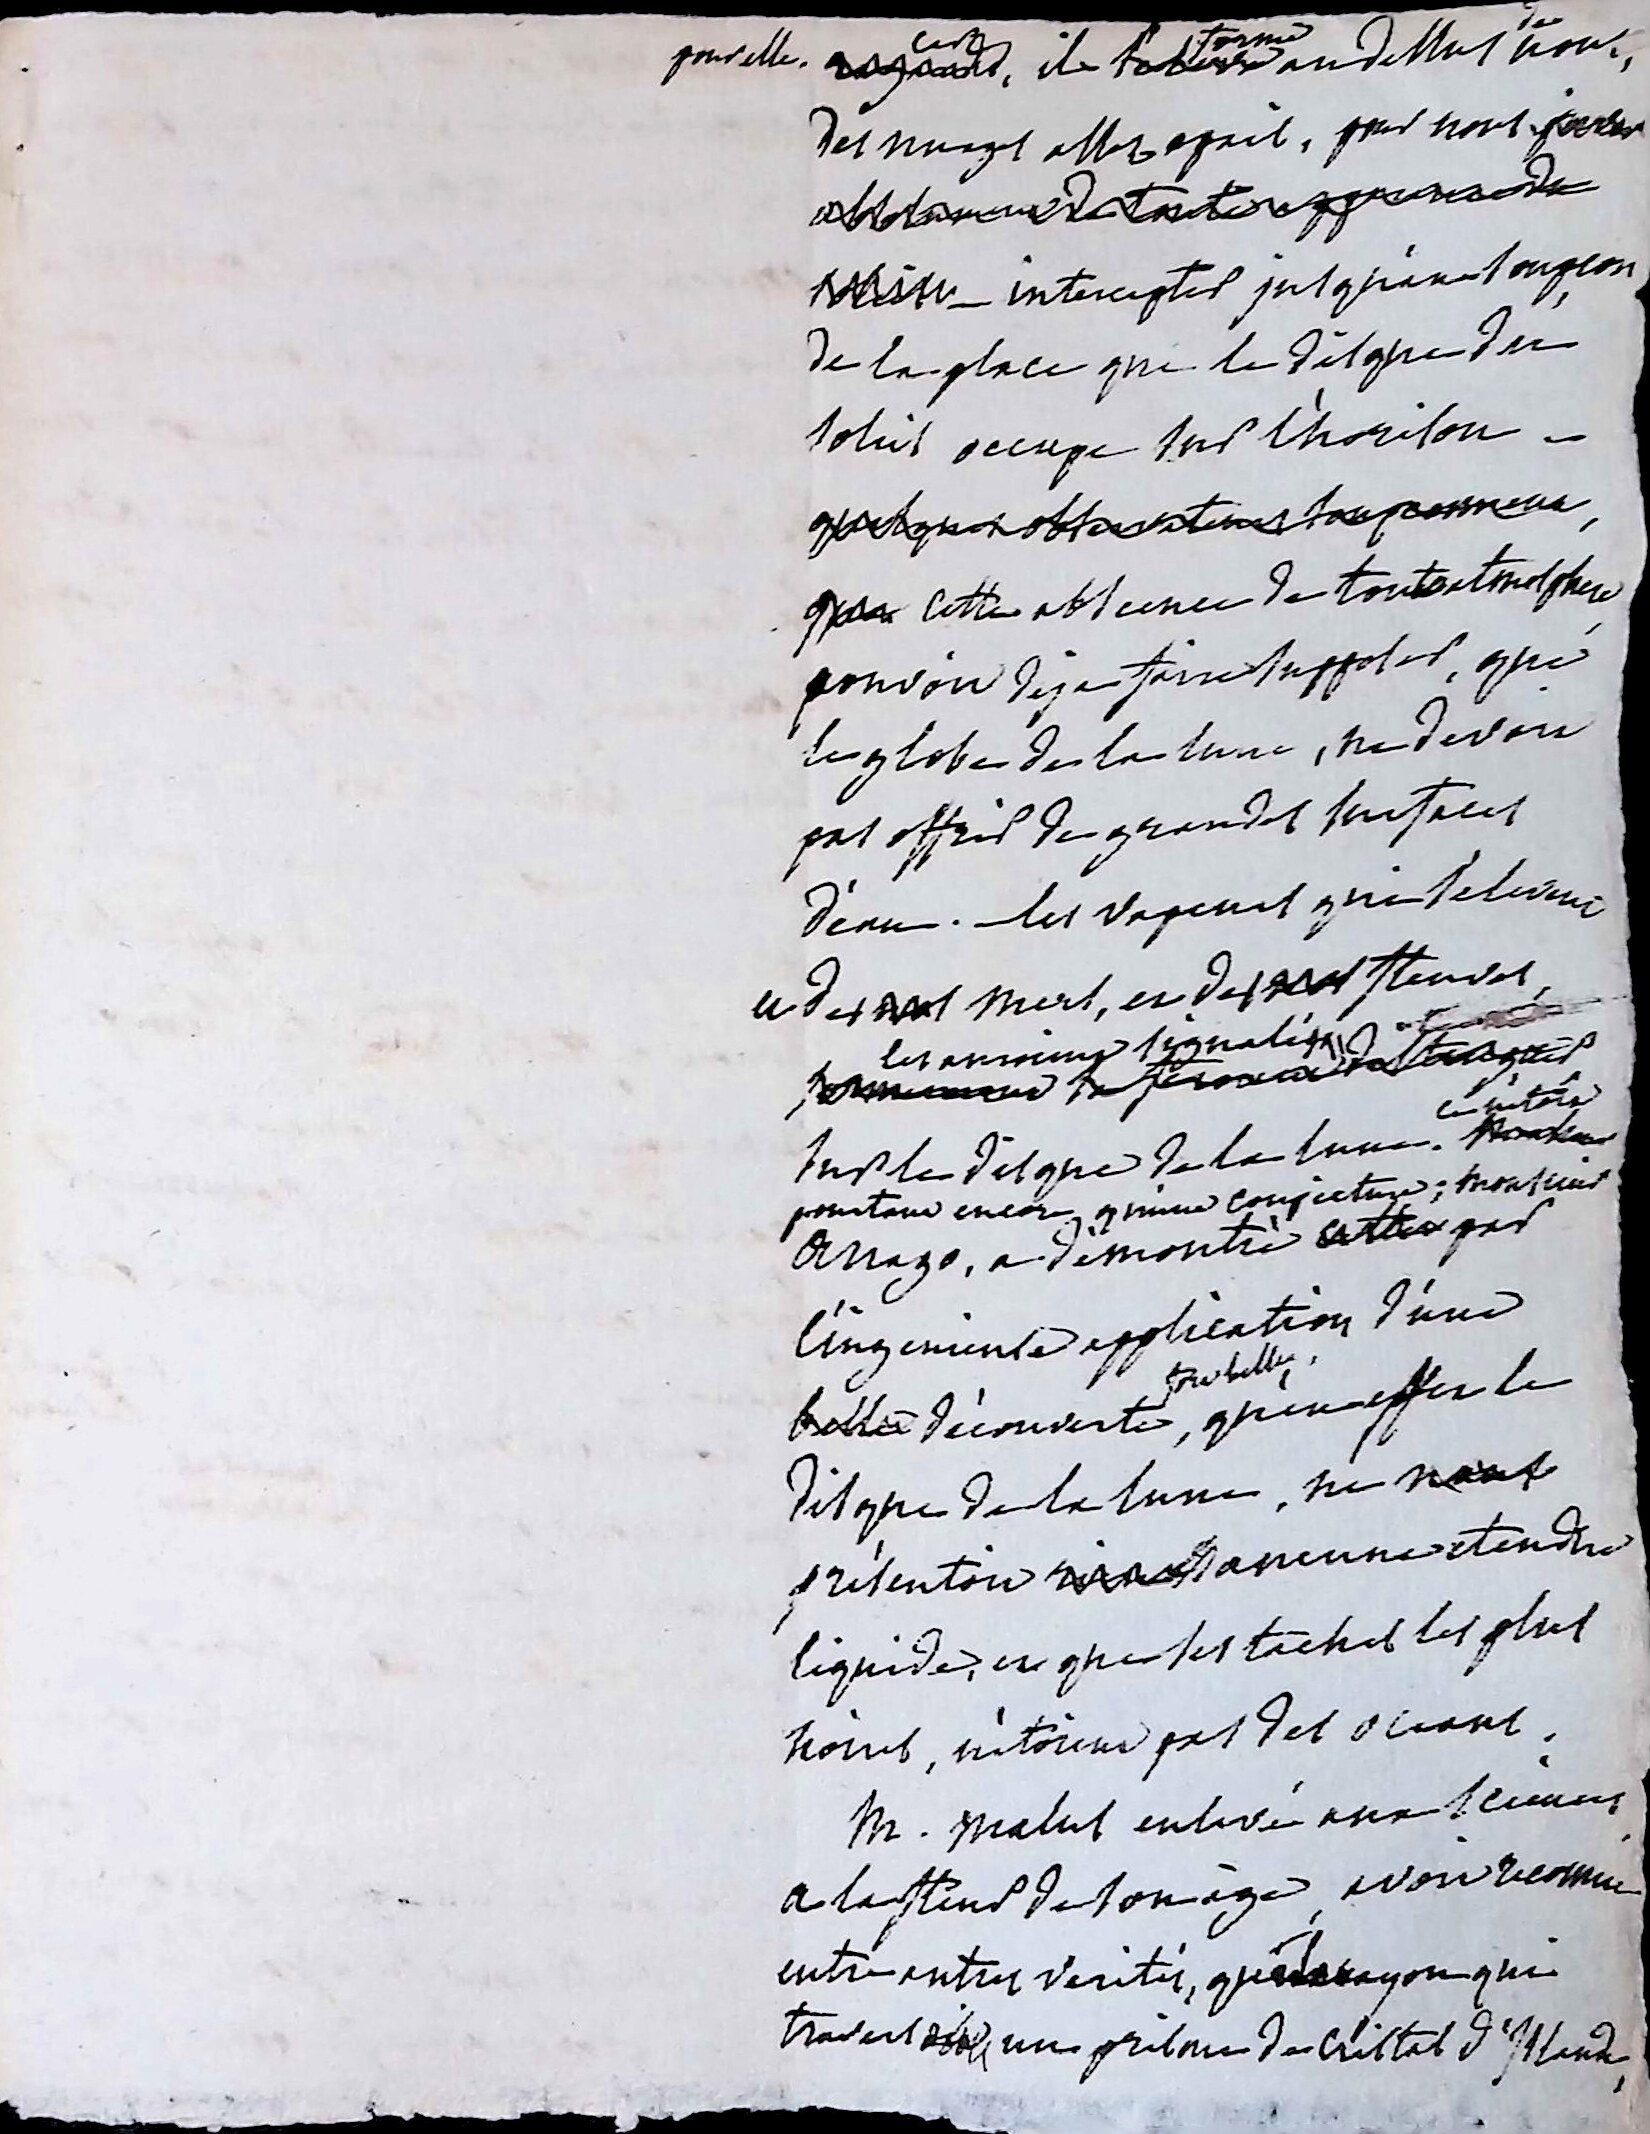 pour elle. car, il se forme au dessus de nous,
des nuages assez epais, pour nous
absolument de toute apparence de
soleil intercepter jusqu'au soupçon
de la place que le disque du
soleil occupe sur l'horison
quelques observateurs soupçonneux,
que cette absence de toute atmosphere
pouvoit deja faire supposer, que
le globe de la lune, ne devoit
pas offrir de grandes surfaces
d'eau. les vapeurs qui s'elevent
et des mers, et des fleuves,
les auroient signalés
sur le disque de la lune. ce n'étoit
pourtant encore qu'une conjecture; monsieur
Arrago, a démontré cette par
l'ingenieuse application d'une
tres belle,
belle découverte, qu'en effet le
disque de la lune, ne nous
présentoit aucune etendue
liquide, et que ses taches les plus
noires, n'étoient pas des oceans.
M. Malus enlevé aux sciences
a la fleur de son age, avoit reconnu
entre autres verités, que rayon qui
traverse un prisme de cristal d'Islande,